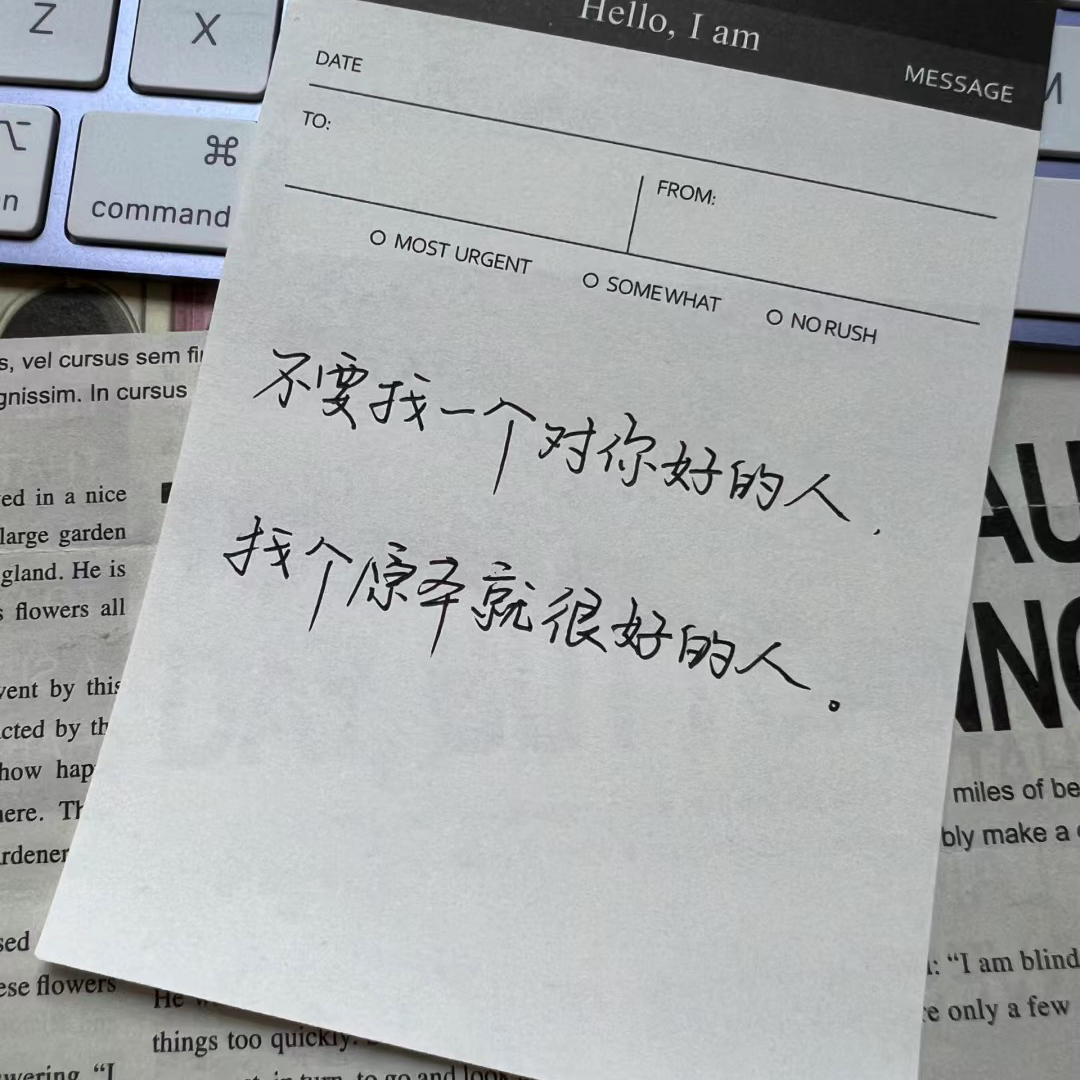 Hello, I am
MESSAGE
DATE
TO:
FROM:
O MOST URGENT O SOMEWHAT O NO RUSH
不要找一个对你好的人,
找个原本就很好的人。
Z
X
command
s, vel cursus sem
gnissim. In cursus
ed in a nice
large garden
gland. He is
s flowers all
vent by this
cted by
how
ere.
sed
ese flowers
He
things too quickly.
wering "I
miles of be
bly make a
: "I am blind
e only a few